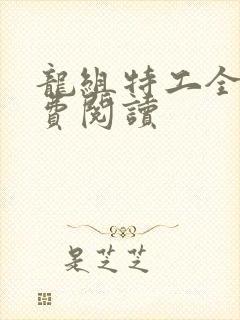 龍組特工全
費閱讀
是芝芝